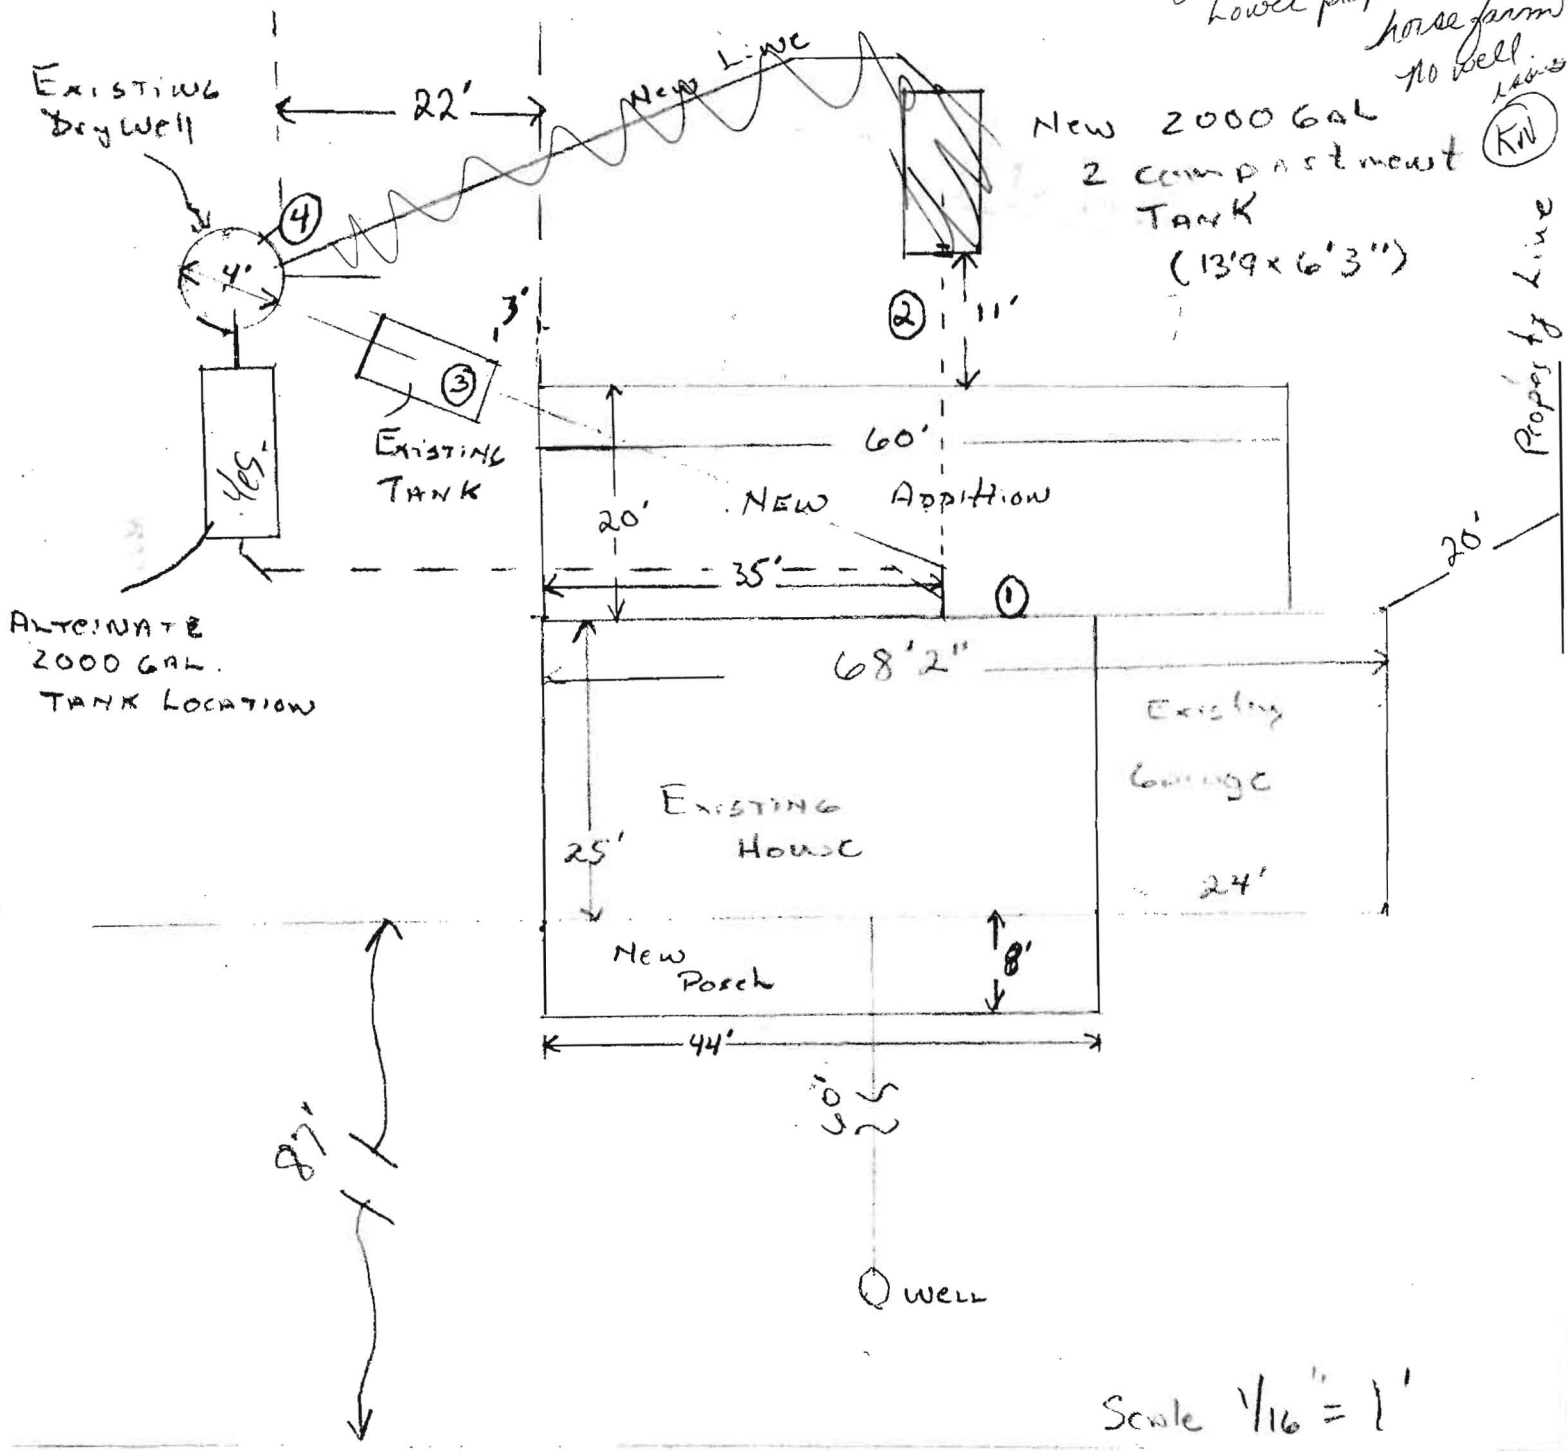 Lower
horse farm
no well
KN
New Line
Existing
Dry Well
22'
New 2000 GAL
2 compartment
TANK
(13'9 x 6'3")
Property Line
4
4'
3'
2
11'
3
Existing
TANK
Yes
60'
New Addition
20'
20'
35'
1
ALTERNATE
2000 GAL.
TANK LOCATION
68'2"
Existing
Garage
24'
Existing
House
25'
New
Porch
8'
44'
87'
Well
Scale 1/16" = 1'